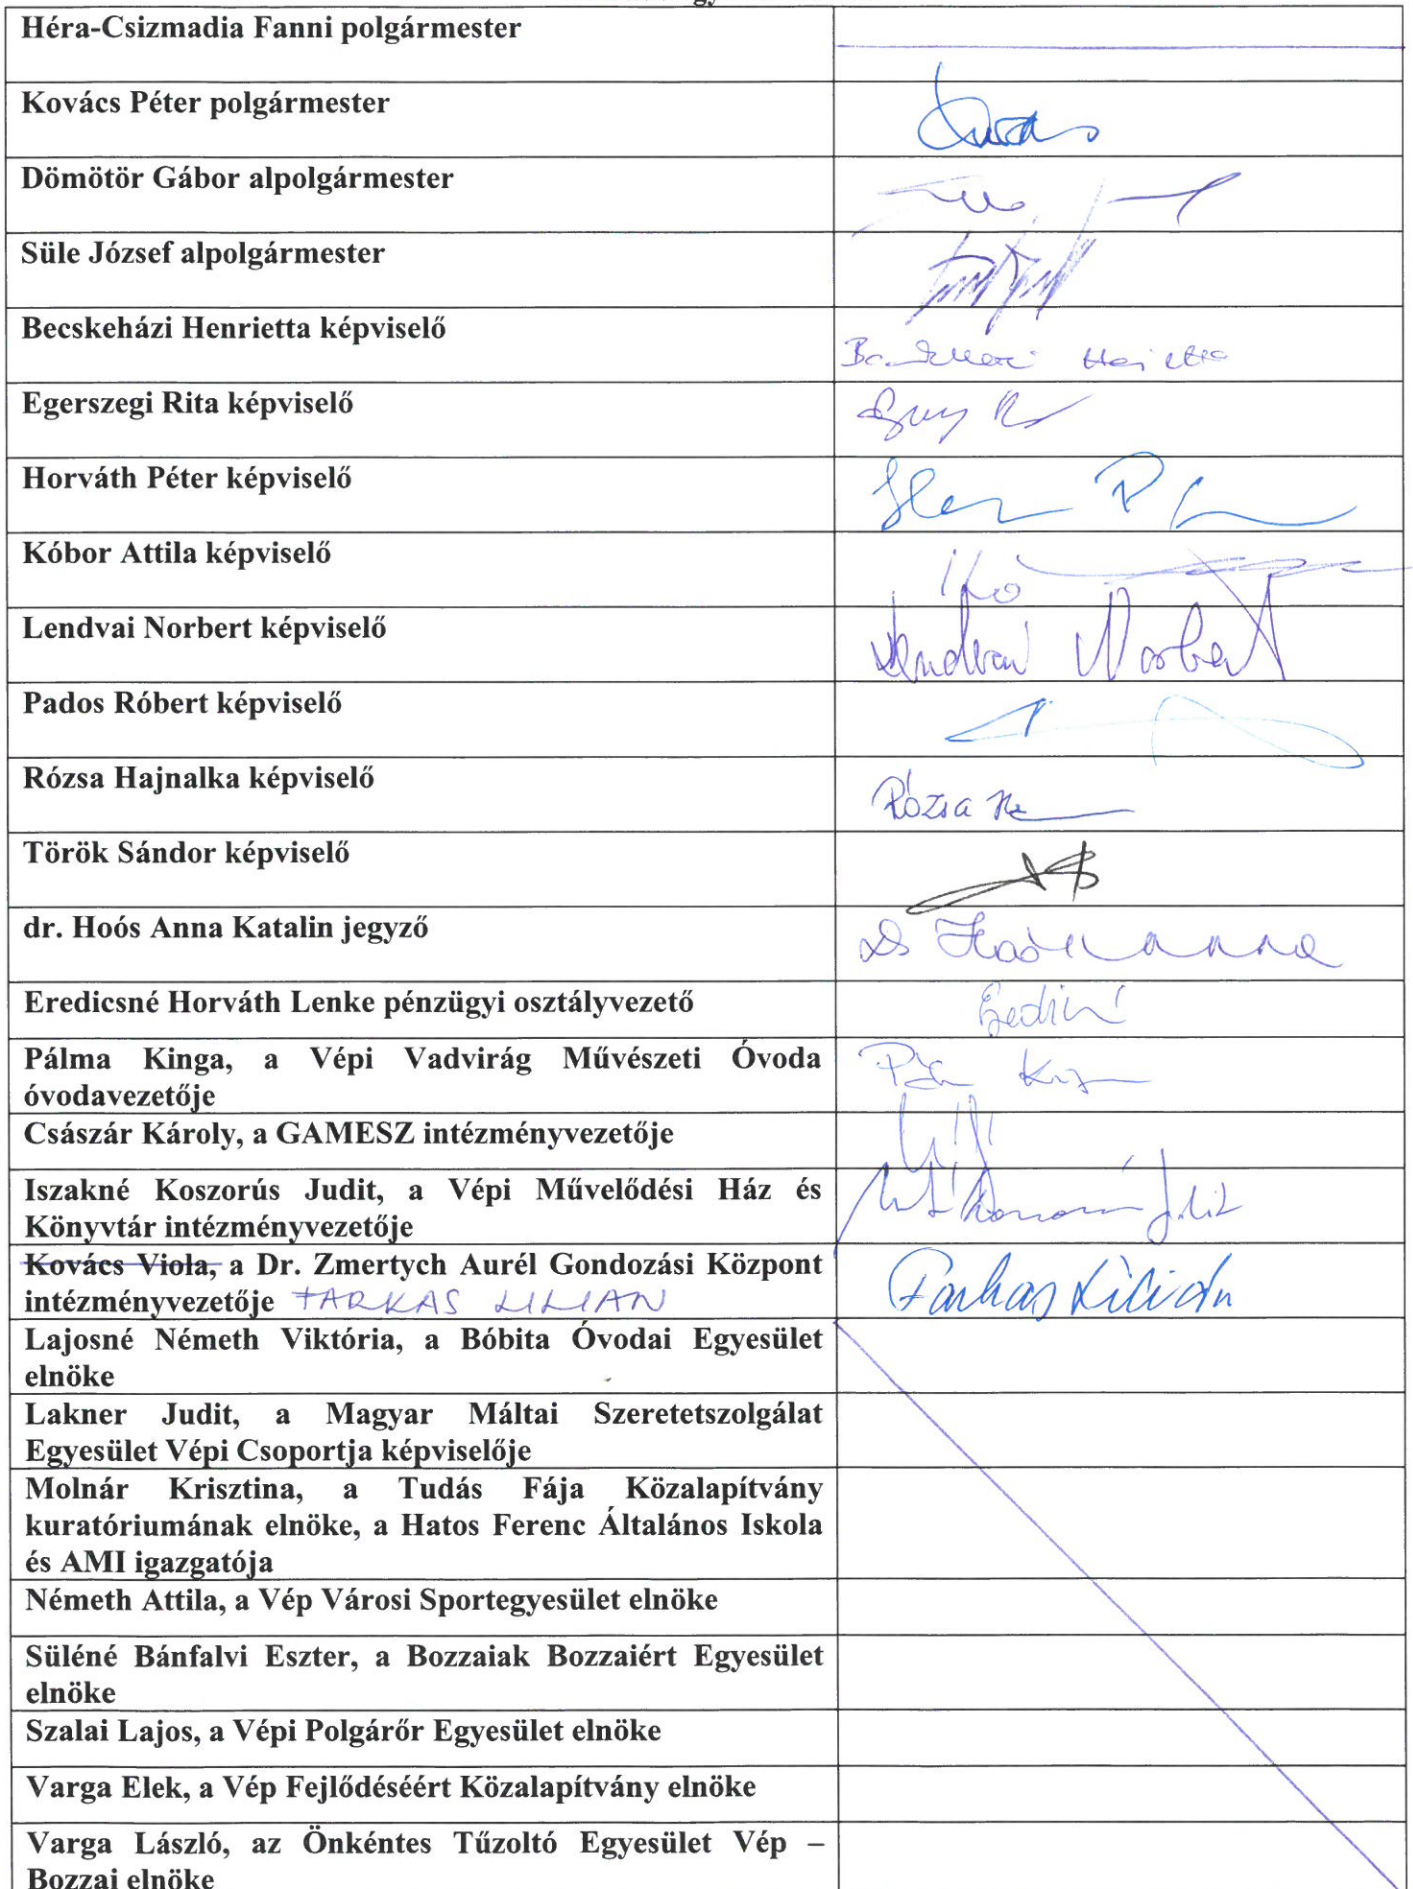 Héra-Csizmadia Fanni polgármester
Kovács Péter polgármester
Dömötör Gábor alpolgármester
Süle József alpolgármester
Becskeházi Henrietta képviselő
Egerszegi Rita képviselő
Horváth Péter képviselő
Kóbor Attila képviselő
Lendvai Norbert képviselő
Lendvai Norbert
Pados Róbert képviselő
Rózsa Hajnalka képviselő
Rózsa
Török Sándor képviselő
dr. Hoós Anna Katalin jegyző
Eredicsné Horváth Lenke pénzügyi osztályvezető
Pálma Kinga, a Vépi Vadvirág Művészeti Óvoda
óvodavezetője
Császár Károly, a GAMESZ intézményvezetője
Iszakné Koszorús Judit, a Vépi Művelődési Ház és
Könyvtár intézményvezetője
Kovács Viola, a Dr. Zmertych Aurél Gondozási Központ
intézményvezetője FARKAS LILIAN
Farkas Lilián
Lajosné Németh Viktória, a Bóbita Óvodai Egyesület
elnöke
Lakner Judit, a Magyar Máltai Szeretetszolgálat
Egyesület Vépi Csoportja képviselője
Molnár Krisztina, a Tudás Fája Közalapítvány
kuratóriumának elnöke, a Hatos Ferenc Általános Iskola
és AMI igazgatója
Németh Attila, a Vép Városi Sportegyesület elnöke
Süléné Bánfalvi Eszter, a Bozzaiak Bozzaiért Egyesület
elnöke
Szalai Lajos, a Vépi Polgárőr Egyesület elnöke
Varga Elek, a Vép Fejlődéséért Közalapítvány elnöke
Varga László, az Önkéntes Tűzoltó Egyesület Vép –
Bozzai elnöke